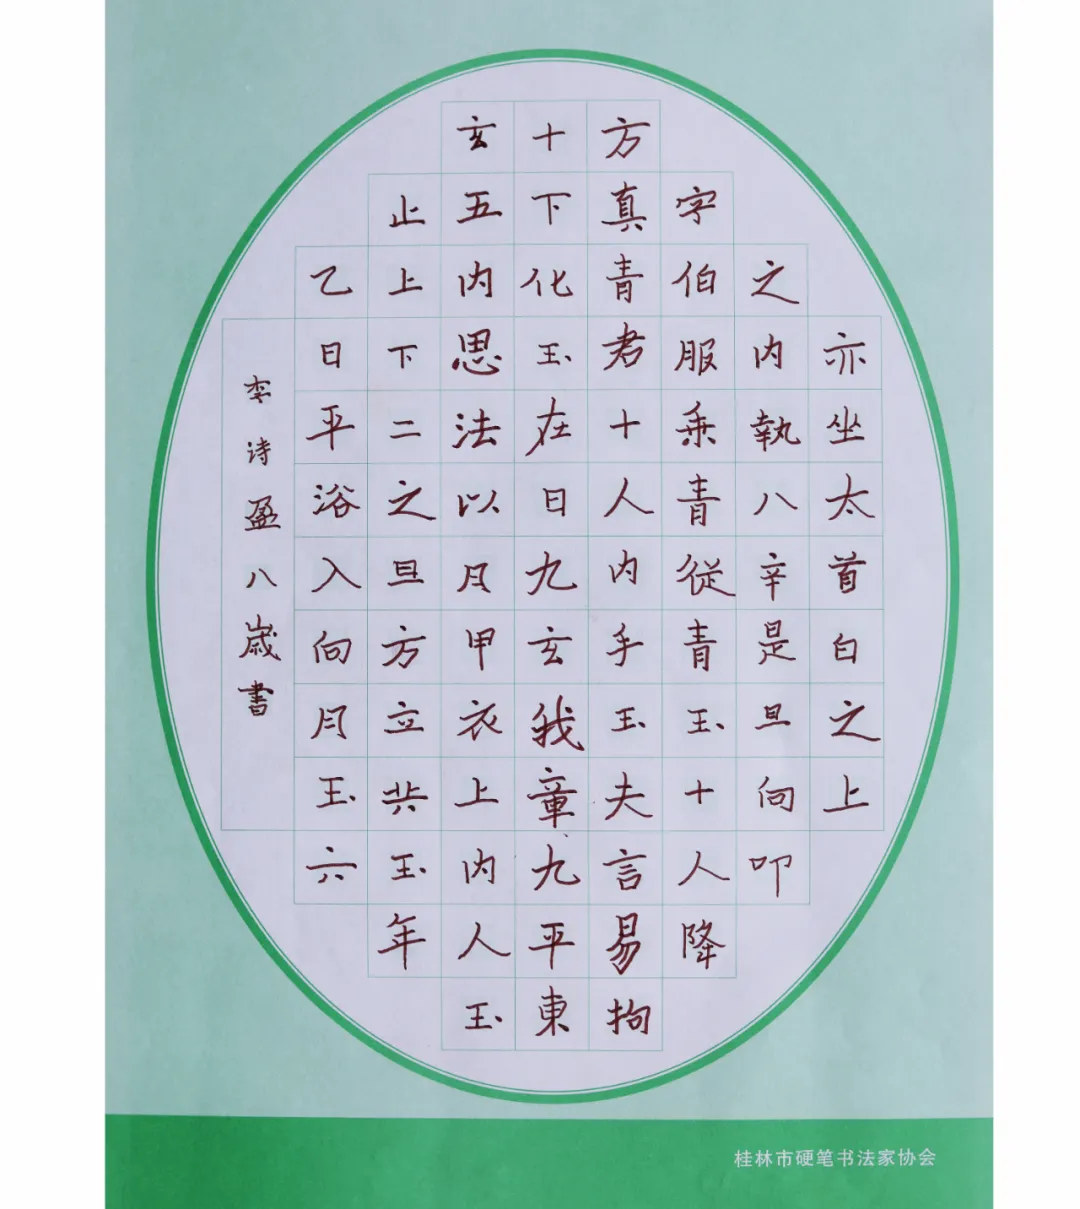 亦坐太首白之上
之内執八辛是旦向叩
字伯服乘青從青玉十人降
方真青君十人内手玉夫言易拘
十下化玉在日九玄我章九平東
玄五内思法以月甲衣上内人玉
止上下二之旦方立共玉年
乙日平浴入向月玉六
李诗盈八歲書
桂林市硬笔书法家协会